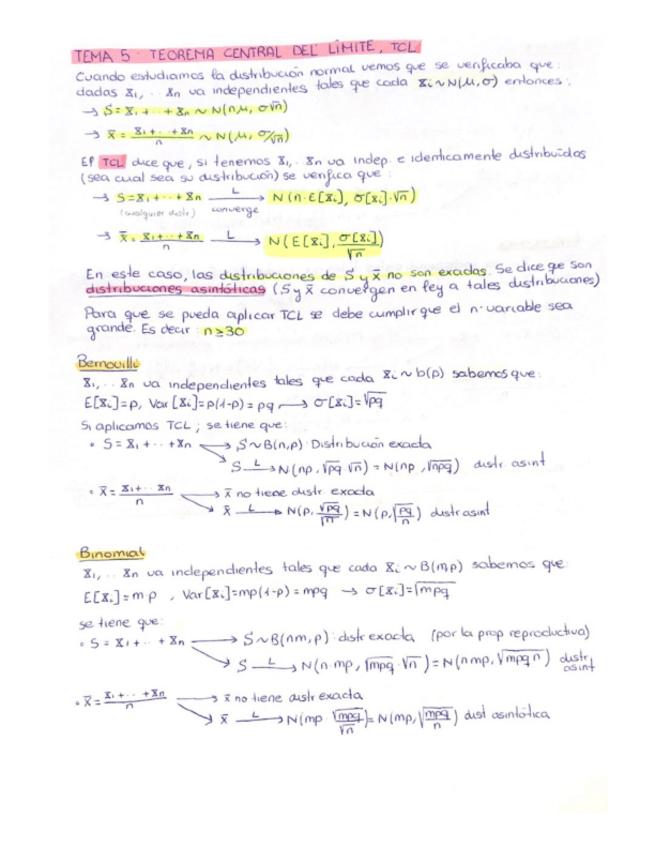 TEMA 5: TEOREMA CENTRAL DEL LÍMITE, TCL
Cuando estudiamos la distribución normal vemos que se verificaba que:
dadas X₁, ... Xn va independientes tales que cada Xi ~ N(μ,σ) entonces:
→ S = X₁ + ... + Xn ~ N(nμ, σ√n)
→ X̄ = (X₁ + ... + Xn)/n ~ N(μ, σ/√n)
El TCL dice que, si tenemos X₁, ... Xn va indep. e identicamente distribuidas
(sea cual sea su distribución) se verifica que:
→ S = X₁ + ... + Xn —L→ N(n·E[Xi], σ[Xi]·√n)
(cualquier distr.) converge
→ X̄ = (X₁ + ... + Xn)/n —L→ N(E[Xi], σ[Xi]/√n)
En este caso, las distribuciones de S y X̄ no son exactas. Se dice que son
distribuciones asintóticas (S y X̄ convergen en ley a tales distribuciones)
Para que se pueda aplicar TCL se debe cumplir que el n·variable sea
grande. Es decir: n≥30
Bernouilli
X₁, ... Xn va independientes tales que cada Xi ~ b(p) sabemos que:
E[Xi]=p, Var[Xi]=p(1-p)=pq → σ[Xi]=√pq
Si aplicamos TCL; se tiene que:
• S = X₁ + ... + Xn → S~B(n,p): Distribución exacta
S —L→ N(np, √pq·√n) = N(np, √npq) distr. asint
• X̄ = (X₁ + ... Xn)/n → X̄ no tiene distr. exacta
X̄ —L→ N(p, √pq/√n) = N(p, √(pq/n)) distr asint
Binomial
X₁, ... Xn va independientes tales que cada Xi ~ B(m,p) sabemos que:
E[Xi]=mp, Var[Xi]=mp(1-p)=mpq → σ[Xi]=√mpq
se tiene que:
• S = X₁ + ... + Xn → S~B(nm,p): distr exacta (por la prop reproductiva)
S —L→ N(n·mp, √mpq·√n) = N(nmp, √mpqn) distr. asint
• X̄ = (X₁ + ... + Xn)/n → X̄ no tiene distr exacta
X̄ —L→ N(mp, √mpq/√n) = N(mp, √(mpq/n)) dist asintótica